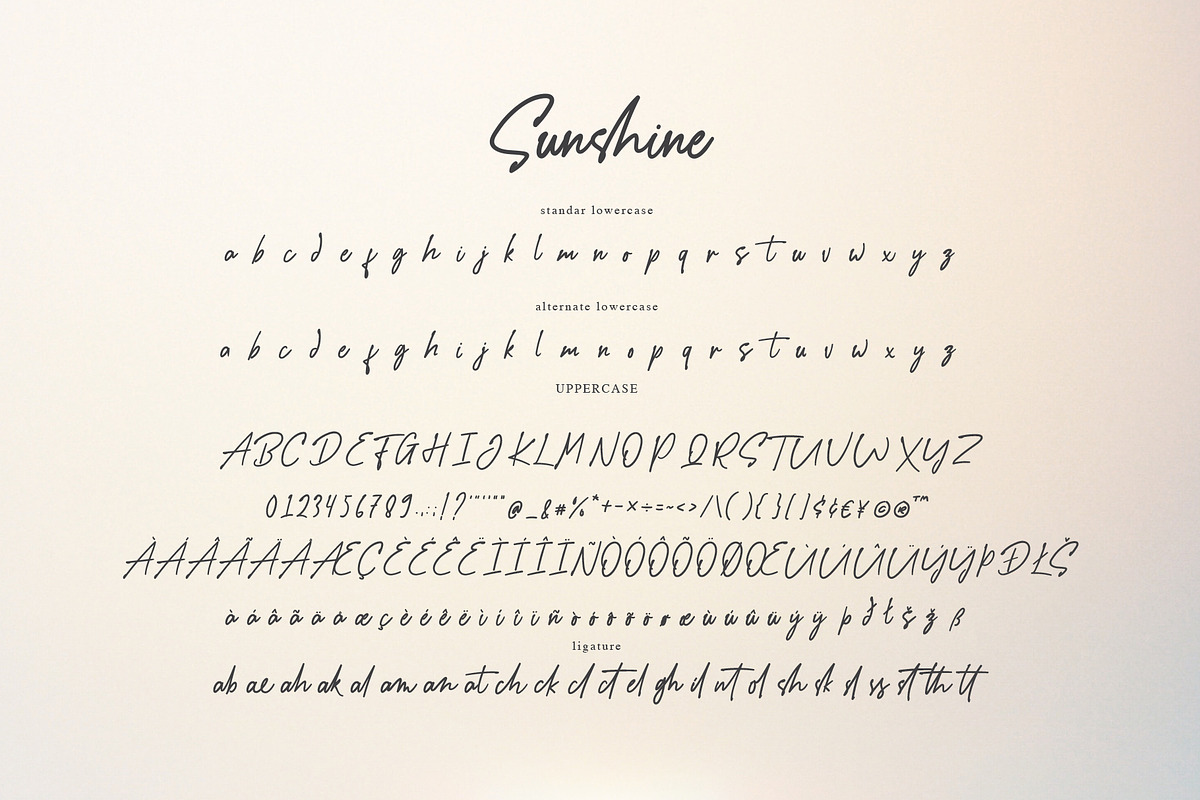 Sunshine
standar lowercase
a b c d e f g h i j k l m n o p q r s t u v w x y z
alternate lowercase
a b c d e f g h i j k l m n o p q r s t u v w x y z
UPPERCASE
A B C D E F G H I J K L M N O P Q R S T U V W X Y Z
0 1 2 3 4 5 6 7 8 9 . , : ; ! ? ' " ‘ ’ “ ” @ _ & # % * + - × ÷ = ~ < > / \ ( ) { } [ ] $ ¢ € ¥ © ® ™
À Á Â Ã Ä Å Æ Ç È É Ê Ë Ì Í Î Ï Ñ Ò Ó Ô Õ Ö Ø Œ Ù Ú Û Ü Ý Ÿ Þ Đ Ł Š
à á â ã ä å æ ç è é ê ë ì í î ï ñ ò ó ô õ ö ø œ ù ú û ü ý ÿ þ đ ł š ž ß
ligature
ab ae ah ak al am an at ch ck cl ct el gh il nt ol sh sk sl ss st th tt